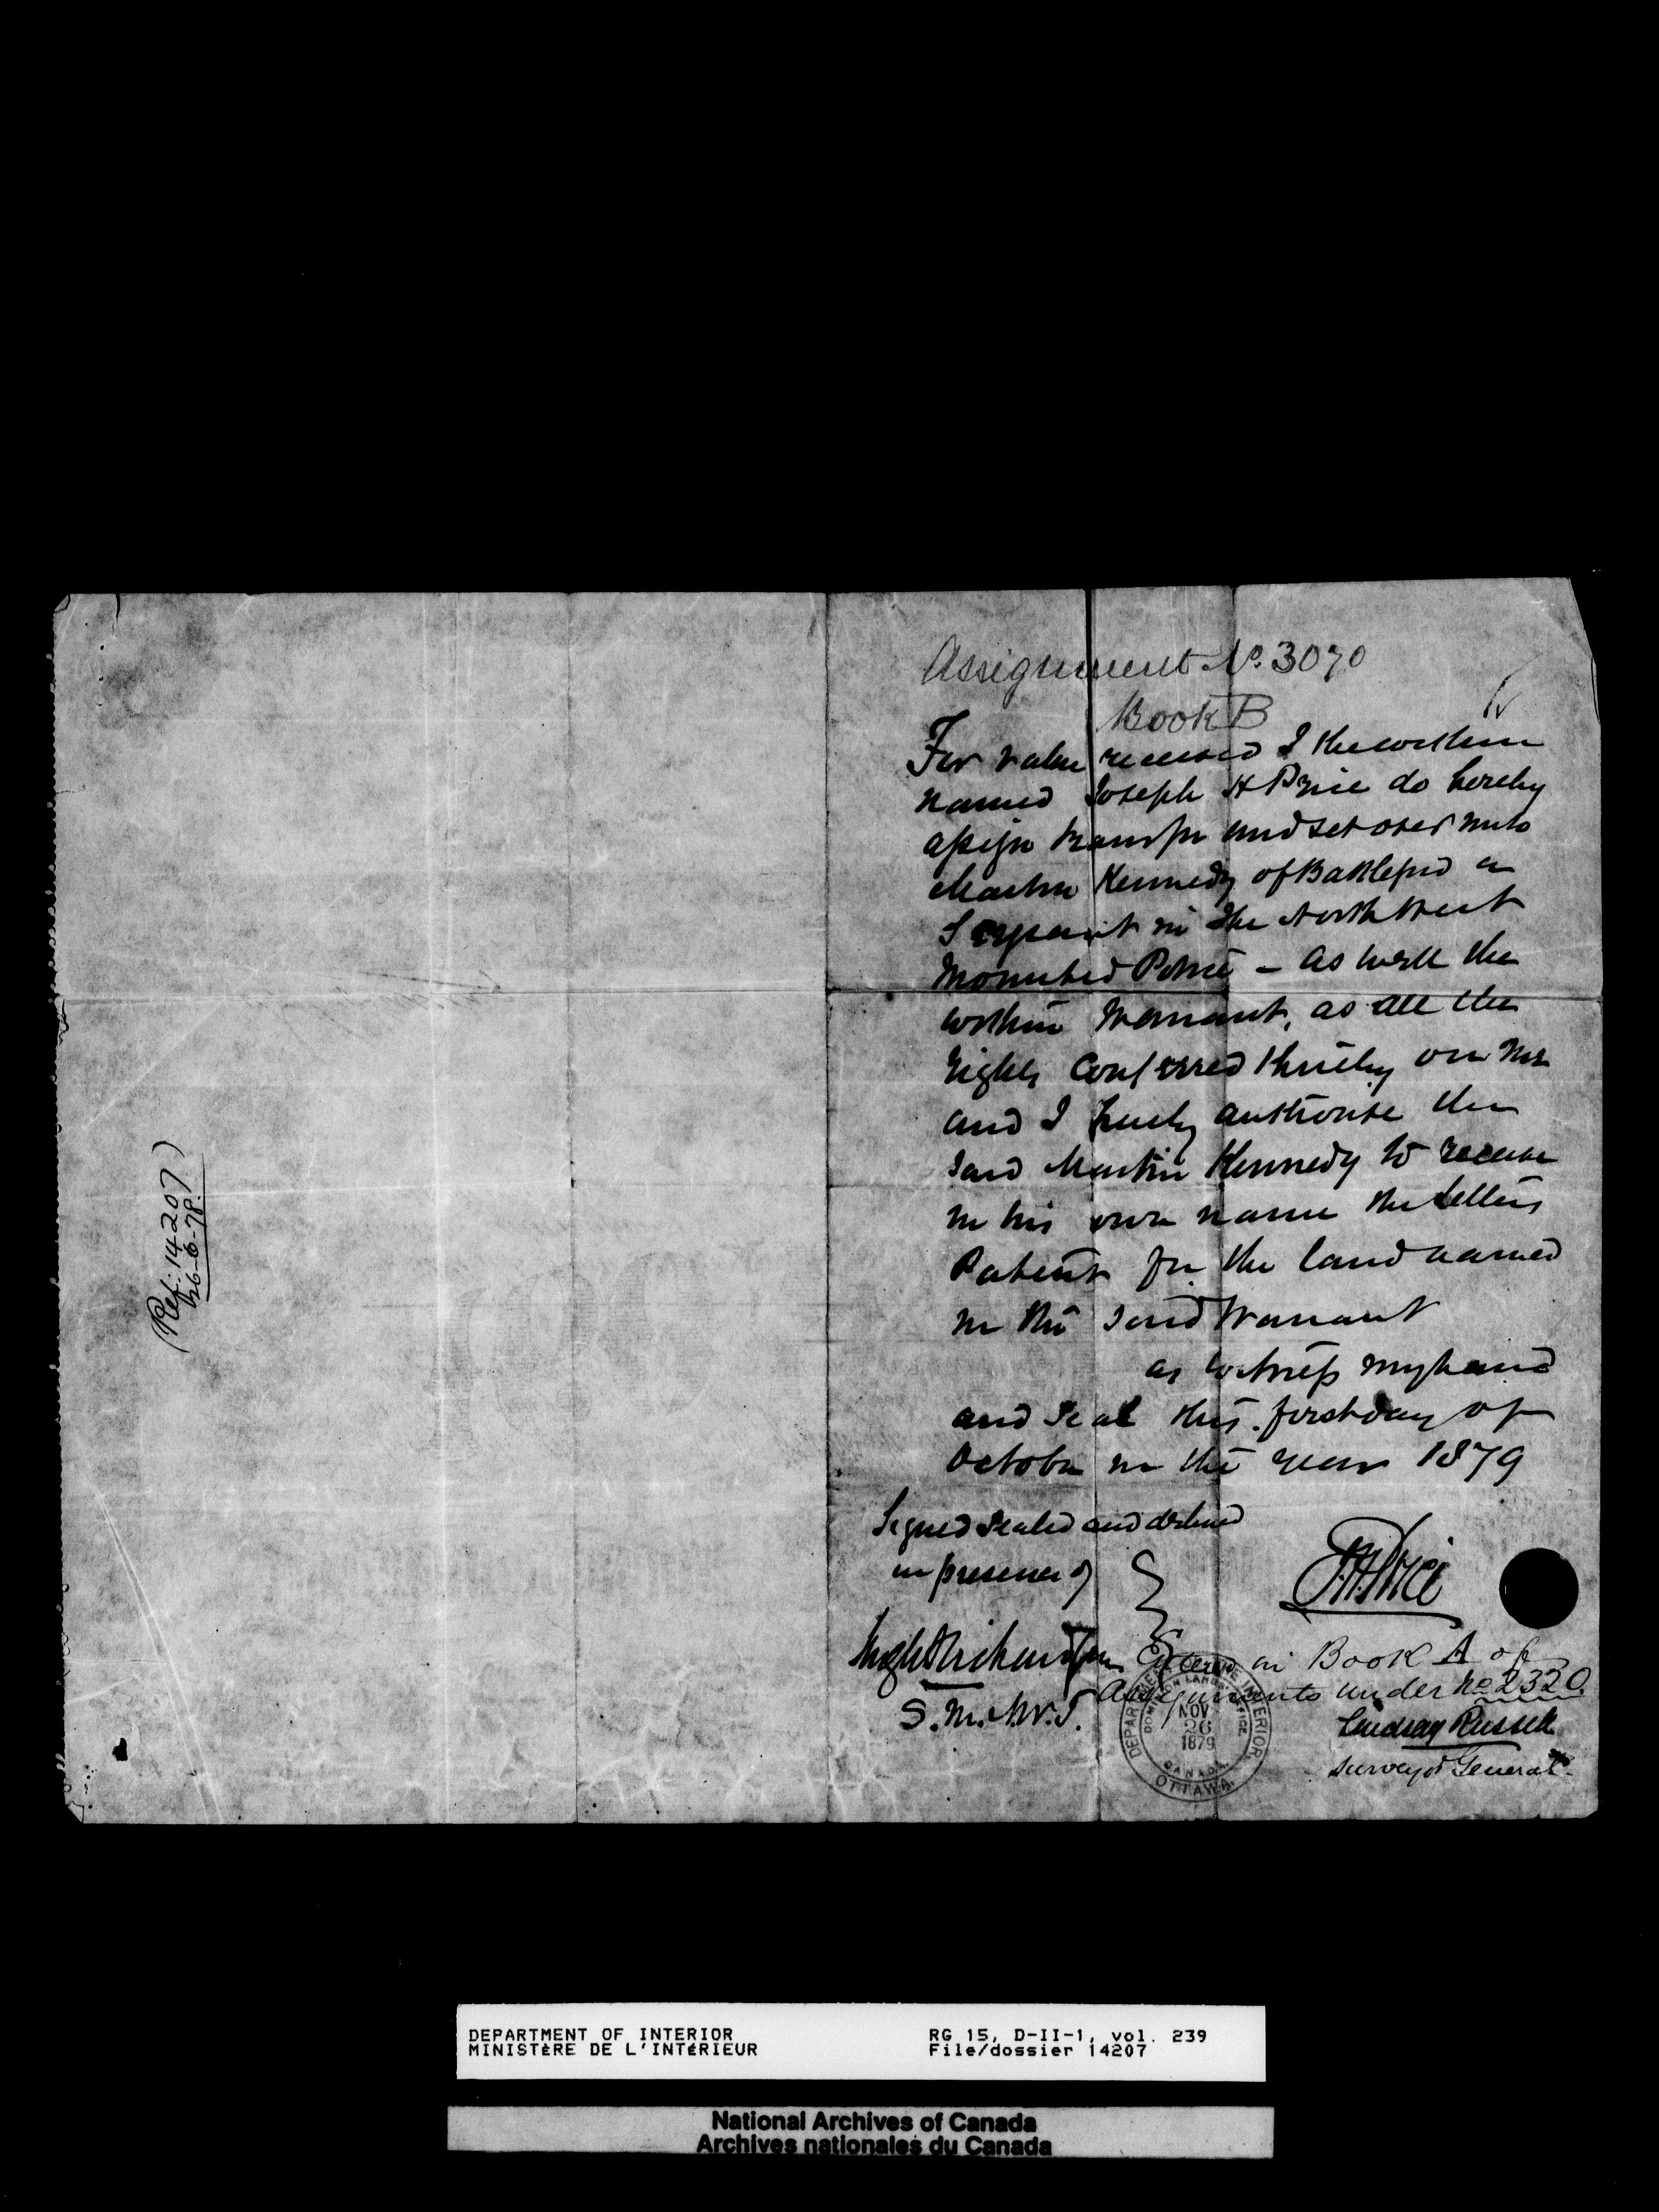 Assignment No. 3070
Book B
For value received I the within
named Joseph H Price do hereby
assign transfer and set over unto
Martin Kennedy of Battleford a
Sergeant in the North West
Mounted Police - as well the
within Warrant, as all the
rights conferred thereby on me
and I hereby authorise the
said Martin Kennedy to receive
in his own name the Letters
Patent for the land named
in the said Warrant
as witness my hand
and seal this first day of
October in the year 1879
Signed Sealed and delivered
in presence of
J.H. Price
Hugh Richardson
S.M. N.W.T.
Entered in Book A of
Assignments under No 2320
Lindsay Russell
Surveyor General
DEPARTMENT OF THE INTERIOR
DOMINION LANDS OFFICE
NOV
26
1879
CANADA
OTTAWA.
(Ref: 14207)
26-6-78.
DEPARTMENT OF INTERIOR
MINISTÈRE DE L'INTÉRIEUR
RG 15, D-II-1, vol. 239
File/dossier 14207
National Archives of Canada
Archives nationales du Canada